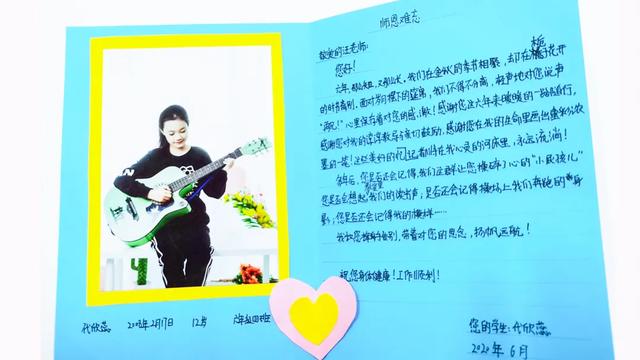 师恩难忘
敬爱的汪老师:
您好!
六年,那么短,又那么长,我们在金秋的季节相聚,却在栀子花开
的时节离别,面对岁月摆下的筵席,我们不得不分离,轻声地对您说声
"再见!"心里保存着对您的感激!感谢您这六年来暖暖的一路陪行,
感谢您对我的谆谆教导和殷切鼓励,感谢您在我的生命里画出浓
墨的一笔!这些美好的记忆都将在我心灵的河床里,永远流淌!
多年后,您是否还会记得我们这群让您操碎了心的"小屁孩儿"
您是否会想起教室里我们的读书声,是否还会记得操场上我们奔跑的身
影,您是否还会记得我的模样……
我和您挥手告别,带着对您的思念,扬帆远航!
祝您身体健康!工作顺利!
您的学生:代欣蕊
2020年6月
代欣蕊 2008年2月17日 12岁 六年级四班